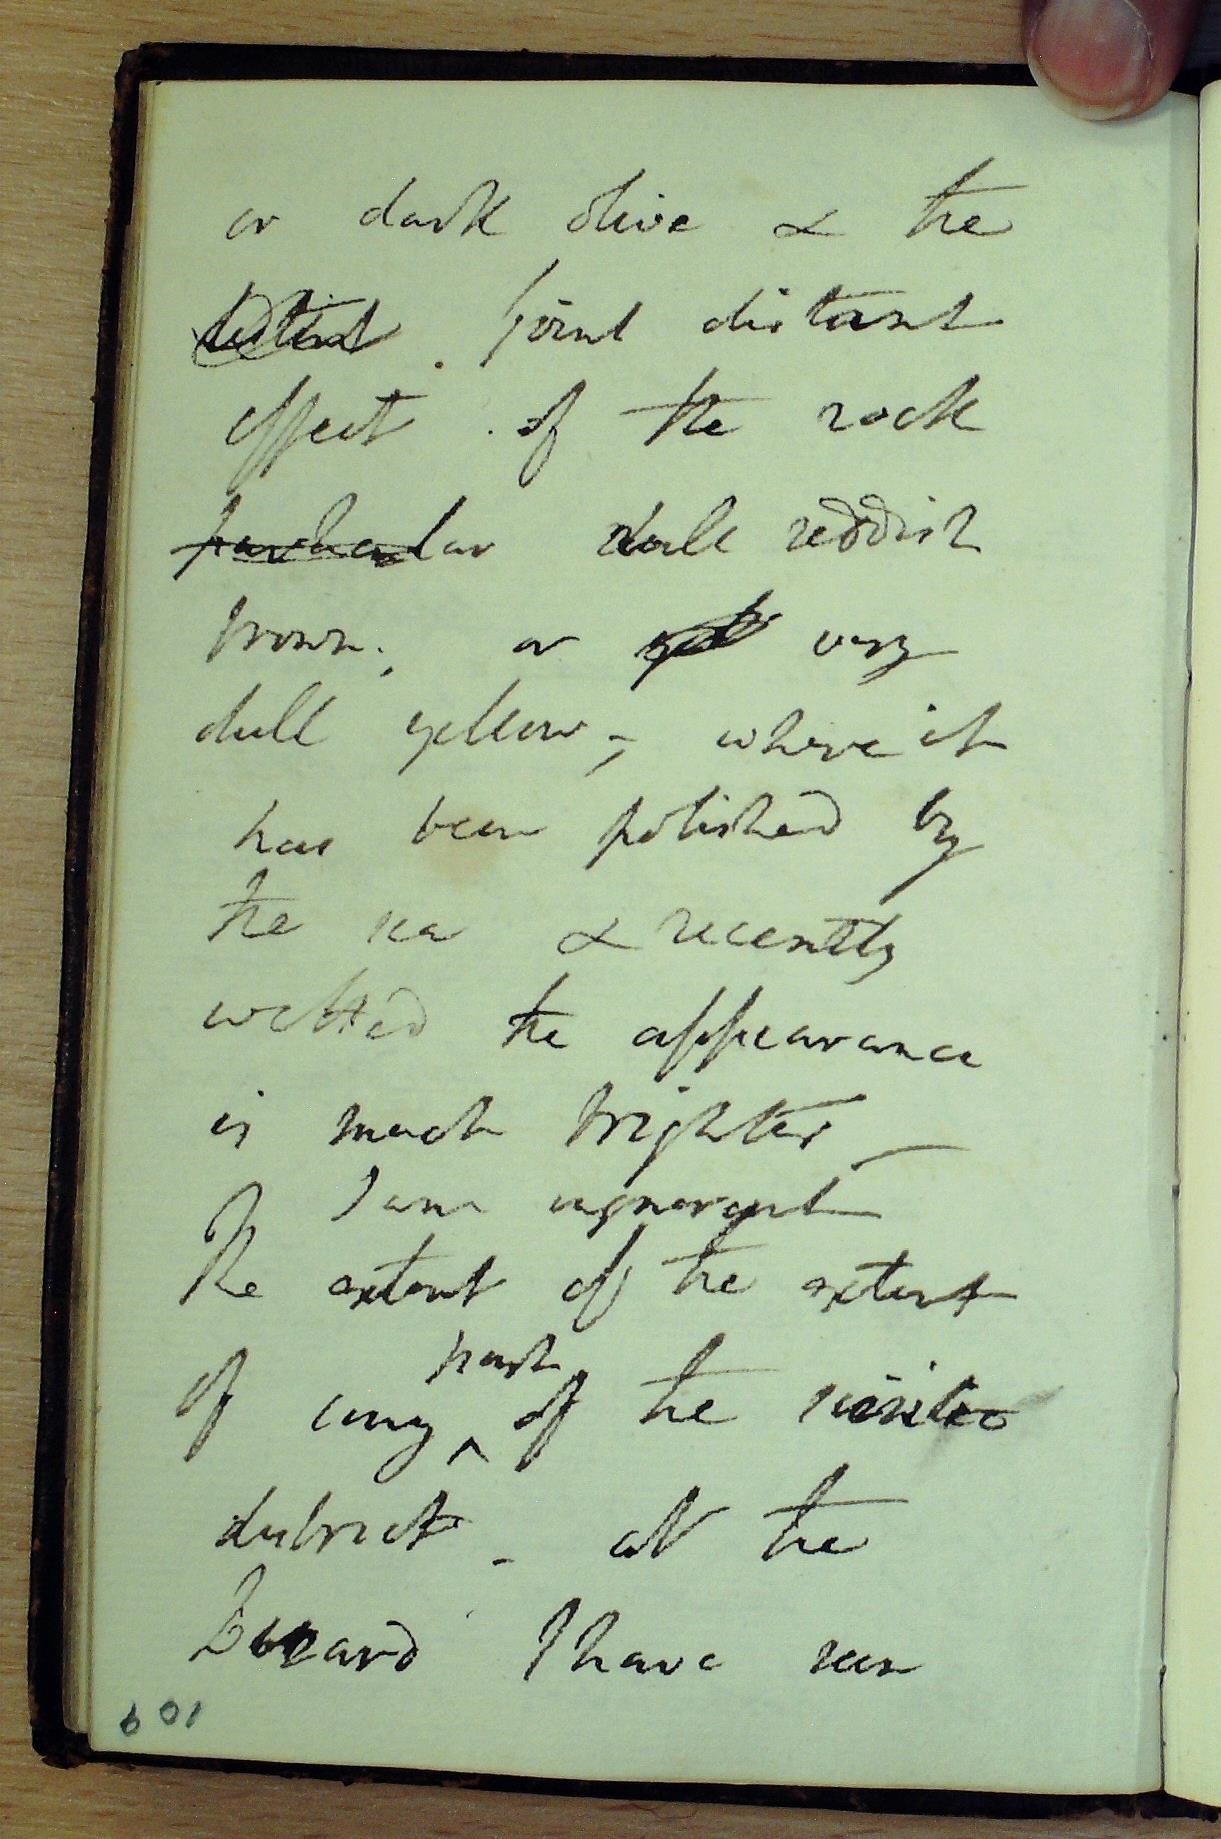 or dark olive & the
distant. joint distant
effect of the rock
particular dull reddish
brown; or very
dull yellow -; where it
has been polished by
the sea & recently
wetted the appearance
is much brighter –
I am ignorant
The extent of the extent
part
of any ^ of the
district - At the
Lizard I have seen
109